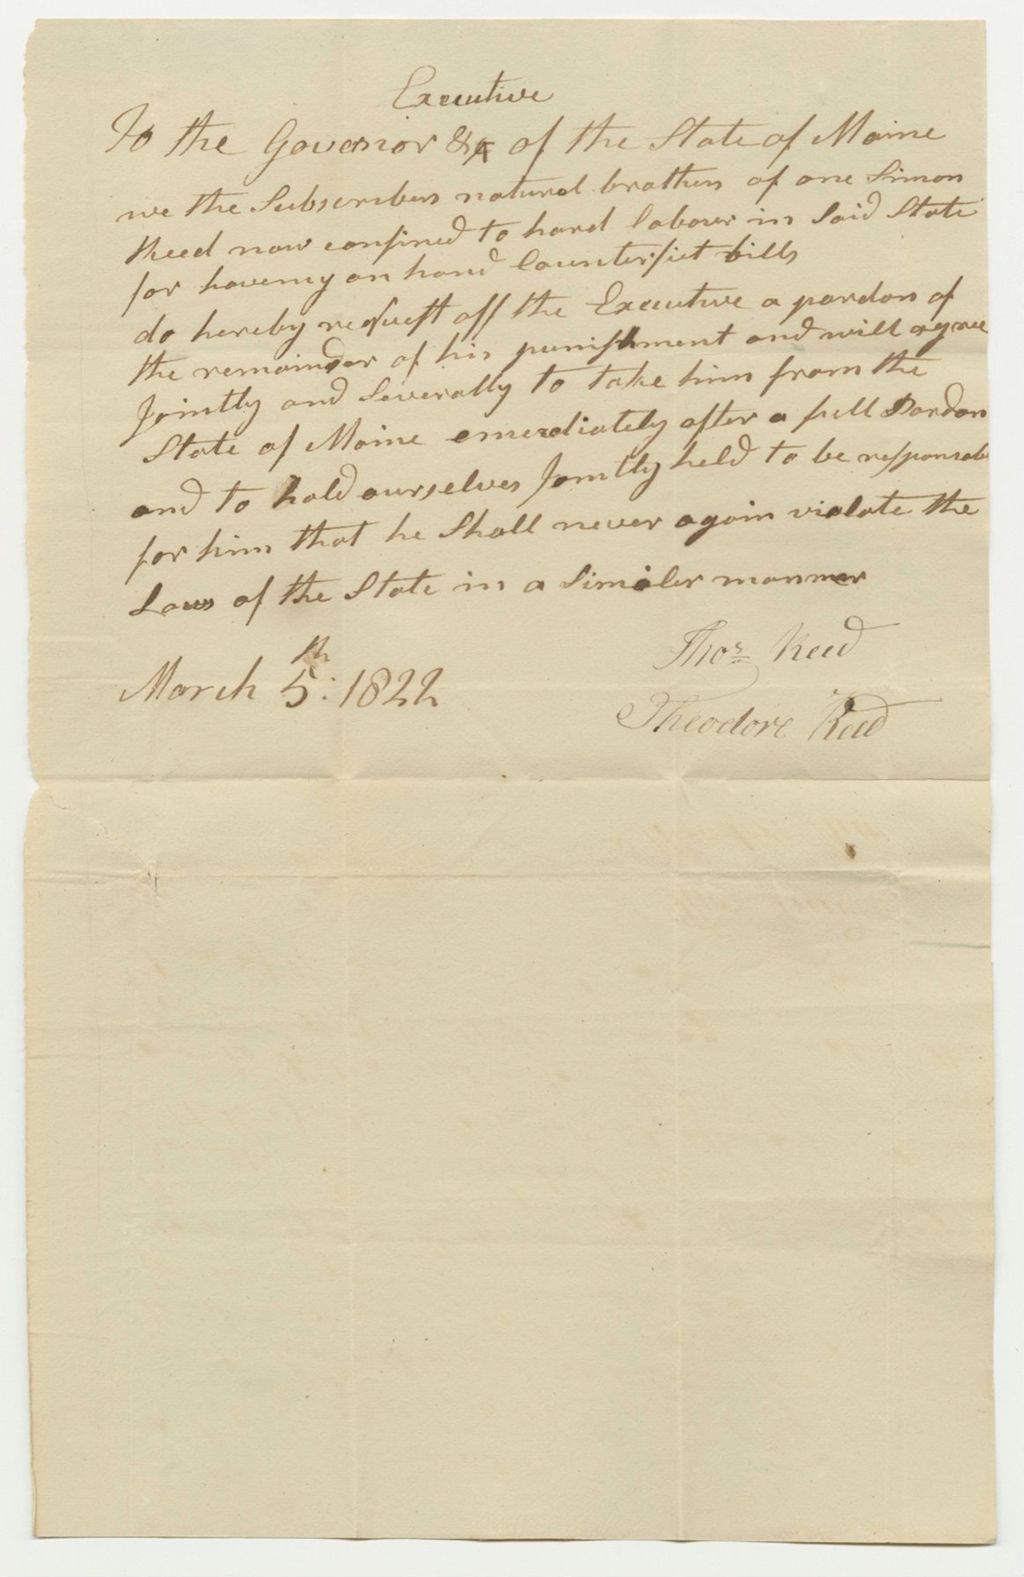 Executive
To the Govenor &c of the State of Maine
we the Subscribers natural brothers of one Simon
Reed now confined to hard labour in Said State
for haveing on hand Counterfiet bills
do hereby request off the Executive a pardon of
the remainder of his punishment and will agree
Jointly and Severally to take him from the
State of Maine emediately after a full Pardon
and to hold ourselves Jointly held to be responsabl
for him that he Shall never again violate the
Laws of the State in a Similer manner
March 5th: 1822
Thos Reed
Theodore Reed